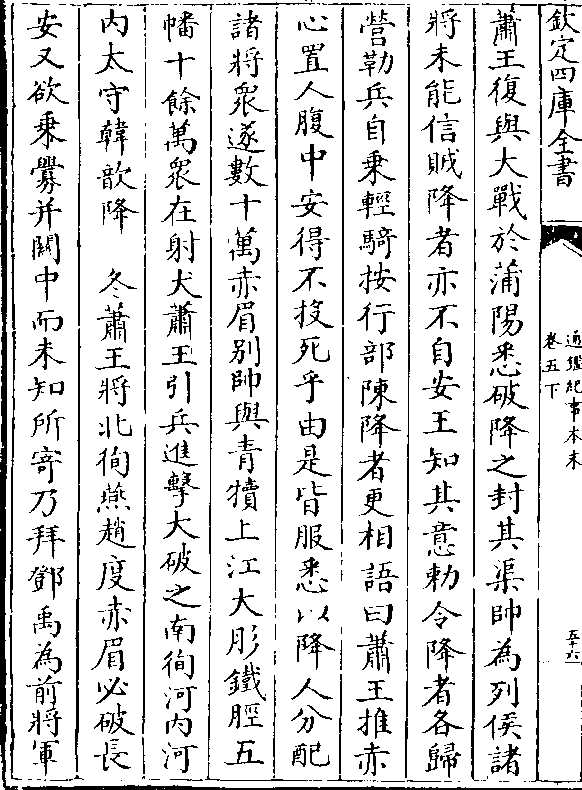 欽定四庫全書
通鑑紀事本末
卷五下
五十六
蕭王復與大戰於蒲陽悉破降之封其渠帥為列侯諸
將未能信賊降者亦不自安王知其意勅令降者各歸
營勒兵自乗輕騎按行部陳降者更相語曰蕭王推赤
心置人腹中安得不投死乎由是皆服悉以降人分配
諸將衆遂數十萬赤眉别帥與青犢上江大彤鐵脛五
幡十餘萬衆在射犬蕭王引兵進擊大破之南徇河内河
内太守韓歆降　冬蕭王將北徇燕趙度赤眉必破長
安又欲乗釁并關中而未知所寄乃拜鄧禹為前將軍